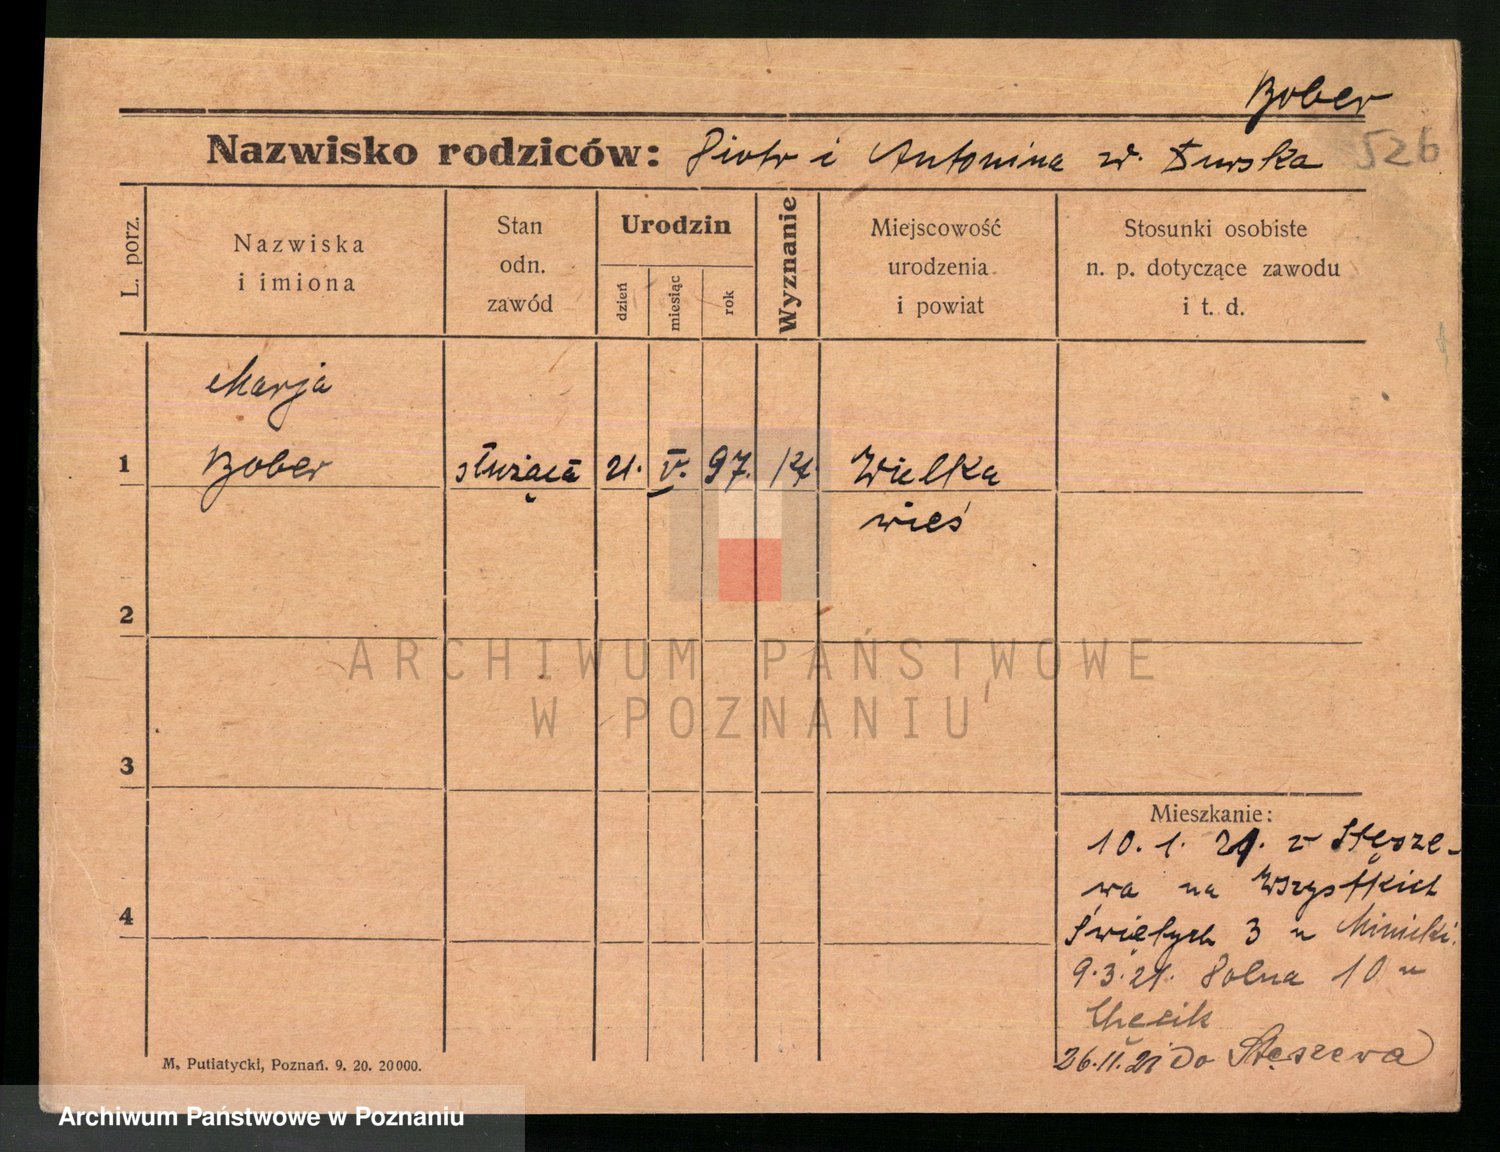 Bober
Nazwisko rodziców: Piotr i Antonina zd. Surska
526
L. porz.
Nazwiska
i imiona
Stan
odn.
zawód
Urodzin
dzień
miesiąc
rok
Wyznanie
Miejscowość
urodzenia
i powiat
Stosunki osobiste
n. p. dotyczące zawodu
i t. d.
Marja
1 Bober służąca 21. V. 97. kt. Wielka
wieś
2
ARCHIWUM PAŃSTWOWE
W POZNANIU
3
Mieszkanie:
10. 1. 21. z Stęsze-
wa na Wszystkich
4
Świętych 3 u
9.3.21. Polna 10 u
26.11.21 Do Stęszewa
M. Putiatycki, Poznań. 9. 20. 20000.
Archiwum Państwowe w Poznaniu